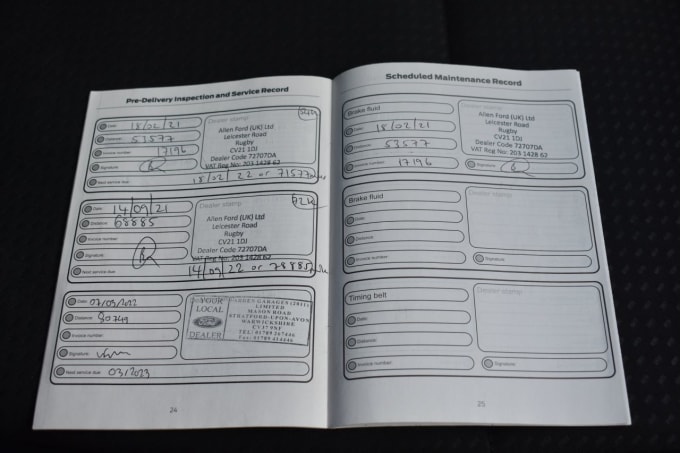 Pre-Delivery Inspection and Service Record
Date: 18/02/21
Distance: 53577
Invoice number: 17196
Signature:
Next service due: 18/02/22 or 71577
Dealer stamp
Allen Ford (UK) Ltd
Leicester Road
Rugby
CV21 1DJ
Dealer Code 72707DA
VAT Reg No: 203 1428 62
Date: 14/09/21
Distance: 68885
Invoice number:
Signature:
Next service due: 14/09/22 or 78885
Dealer stamp
Allen Ford (UK) Ltd
Leicester Road
Rugby
CV21 1DJ
Dealer Code 72707DA
VAT Reg No: 203 1428 62
Date: 07/03/2022
Distance: 80749
Invoice number:
Signature:
Next service due: 03/2023
YOUR
LOCAL
Ford
DEALER
GARAGES (2011)
LIMITED
MASON ROAD
STRATFORD-UPON-AVON
WARWICKSHIRE
CV37 9NF
24
Scheduled Maintenance Record
Brake fluid
Date: 18/02/21
Distance: 53577
Invoice number: 17196
Dealer stamp
Allen Ford (UK) Ltd
Leicester Road
Rugby
CV21 1DJ
Dealer Code 72707DA
VAT Reg No: 203 1428 62
Signature:
Brake fluid
Date:
Distance:
Invoice number:
Dealer stamp
Signature:
Timing belt
Date:
Distance:
Invoice number:
Dealer stamp
Signature:
25